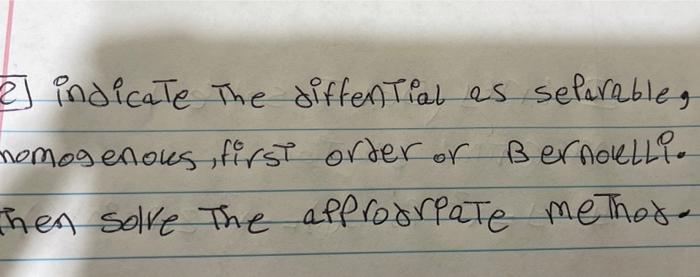 2] indicate The diffenTial as separable,
homogenous, first order or Bernoulli.
Then solve The approdrpate method.